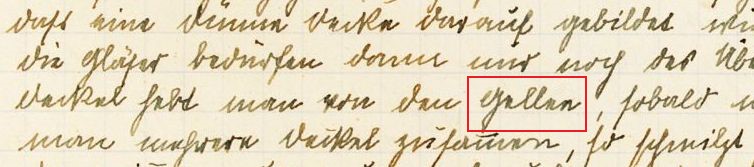 daß eine dünne Decke darauf gebildet
die Gläser bedürfen dann nur noch des
Deckel hebt man von den Zellen, sobald
man mehrere Deckel zusammen, so schmilzt